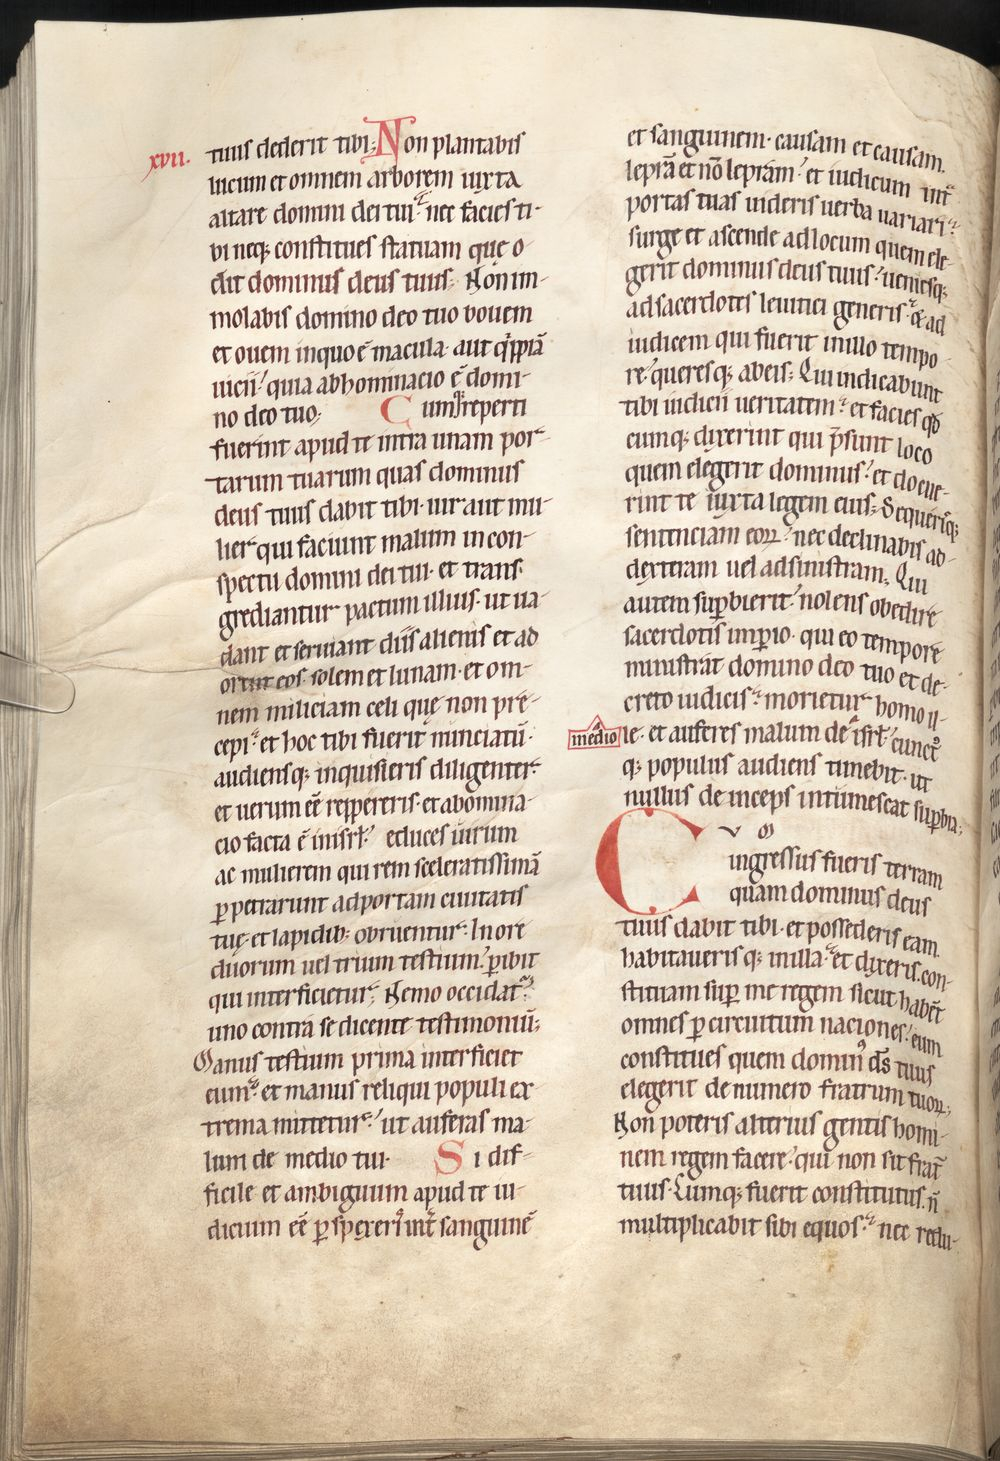 xvii.
tuus dederit tibi; Non plantabis
lucum et omnem arborem iuxta
altare domini dei tui. nec facies ti-
bi neq; constitues statuam quę o-
dit dominus deus tuus; Non im-
molabis domino deo tuo bouem
et ouem in quo ē macula. aut q̇ppiā
uicii. quia abhominacio ē domi-
no deo tuo; Cum reperti
fuerint apud te intra unam por-
tarum tuarum quas dominus
deus tuus dabit tibi. uir aut mu-
lier qui faciunt malum in con-
spectu domini dei tui. et trans-
grediantur pactum illius. ut ua-
dant et seruiant diis alienis et ad
orent eos. solem et lunam. et om-
nem miliciam celi quę non pre-
cepi. et hoc tibi fuerit nunciatū.
audiensq; inquisieris diligenter.
et uerum eē reppereris. et abomina-
cio facta ē in isrł. educes uirum
ac mulierem qui rem sceleratissimā
ꝑpetrarunt ad portam ciuitatis
tuę. et lapidib; obruentur. In ore
duorum uel trium testium. ꝑibit
qui interficietur; Nemo occidat.
uno contra se dicente testimoniū;
Manus testium prima interficiet
eum. et manus reliqui populi ex
trema mittetur. ut auferas ma-
lum de medio tui. Si dif-
ficile et ambiguum apud te iu-
dicium eē ꝑspexeris int̄ sanguinē
et sanguinem. causam et causam.
leprā et nō leprām. et iudicum int̄
portas tuas uideris uerba uariari.
surge et ascende ad locum quem ele-
gerit dominus deus tuus. ueniesq;
ad sacerdotes leuitici generis. & ad
iudicem qui fuerit in illo tempo-
re. queresq; ab eis; Qui indicabunt
tibi iudicii ueritatem. et facies qđ
cumq; dixerint qui p̄sunt loco
quem elegerit dominus. et docue-
rint te iuxta legem eius; Sequerisq;
sentenciam eoꝝ. nec declinabis ad
dexteram uel ad sinistram; Qui
autem suꝑbierit. nolens obedire
sacerdotis imꝑio. qui eo tempore
ministrat domino deo tuo et de-
creto iudicis. morietur homo il-
le. et auferes malum de isrł. cunct̉
medio
q; populus audiens timebit. ut
nullus deinceps intumescat suꝑbia;
Cum
ingressus fueris terram
quam dominus deus
tuus dabit tibi. et possederis eam.
habitauerisq; in illa. et dixeris. con-
stituam suꝑ me regem sicut habēt
omnes ꝑ circuitum naciones. eum
constitues quem domin̉ đs tuus
elegerit de numero fratrum tuoꝝ;
Non poteris alterius gentis homi-
nem regem facere. qui non sit frat̄
tuus. Cumq; fuerit constitutus. n̄
multiplicabit sibi equos. nec redu-